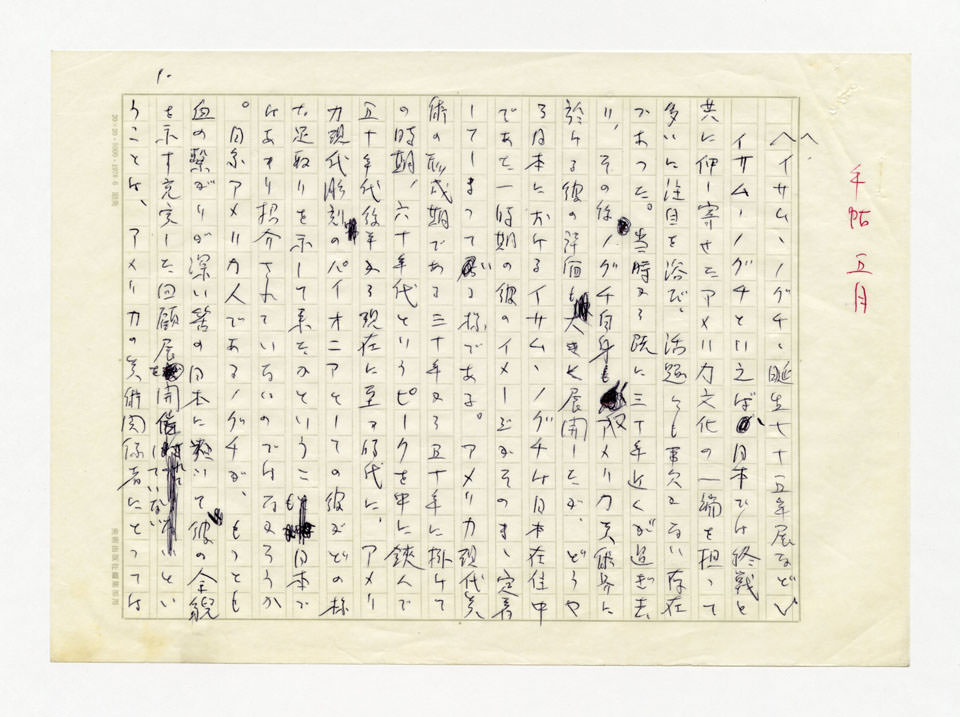 手帖 五月
1.
へイサム・ノグチ・誕生七十五年展など〉
イサム・ノグチといえば、日本では終戦と
共に押し寄せたアメリカ文化の一端を担って
多いに注目を浴び、活題にも事欠かない存在
であった。当時から既に三十年近くが過ぎ去
り、その後ノグチ自身もアメリカ美術界に
於ける彼の評価も大きく展開したが、どうや
ら日本におけるイサム・ノグチは日本在住中
であった一時期の彼のイメージがそのまゝ定着
してしまっている様である。アメリカ現代美
術の形成期である三十年から五十年に掛けて
の時期、六十年代というピークを中に鋏んで
五十年代後半から現在に至る時代に、アメリ
カ現代彫刻のパイオニアとしての彼がどの様
な足取りを示して来たかということも日本で
はあまり招介されていないのではなかろうか
。日系アメリカ人であるノグチが、もっとも
血の繋がりが深い筈の日本に於いて彼の全貌
を示す充実した回顧展を開催していないとい
うことは、アメリカの美術関係者にとっては
20×20=1000・1978・6
美術出版社編集部用